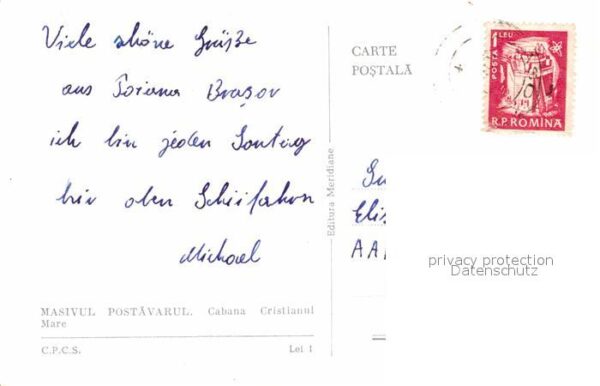 Viele schöne Grüße
aus Poiana Brașov
ich bin jeden Sonntag
hier oben Schiifahren
Michael
MASIVUL POSTĂVARUL. Cabana Cristianul
Mare
C.P.C.S.
Lei 1
Editura Meridiane
CARTE
POŞTALĂ
POSTA 1 LEU
R.P. ROMINA
Elis
AA
privacy protection
Datenschutz